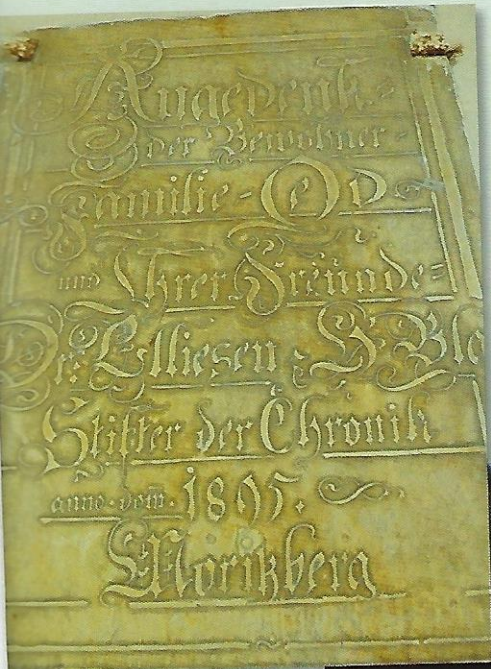 Angedenk-
der Bewohner-
Familie-Od
und Ihrer Freunde=
Dr: Elliesen, H Bla
Stifter der Chronik
anno. vom. 1895.
Moritzberg